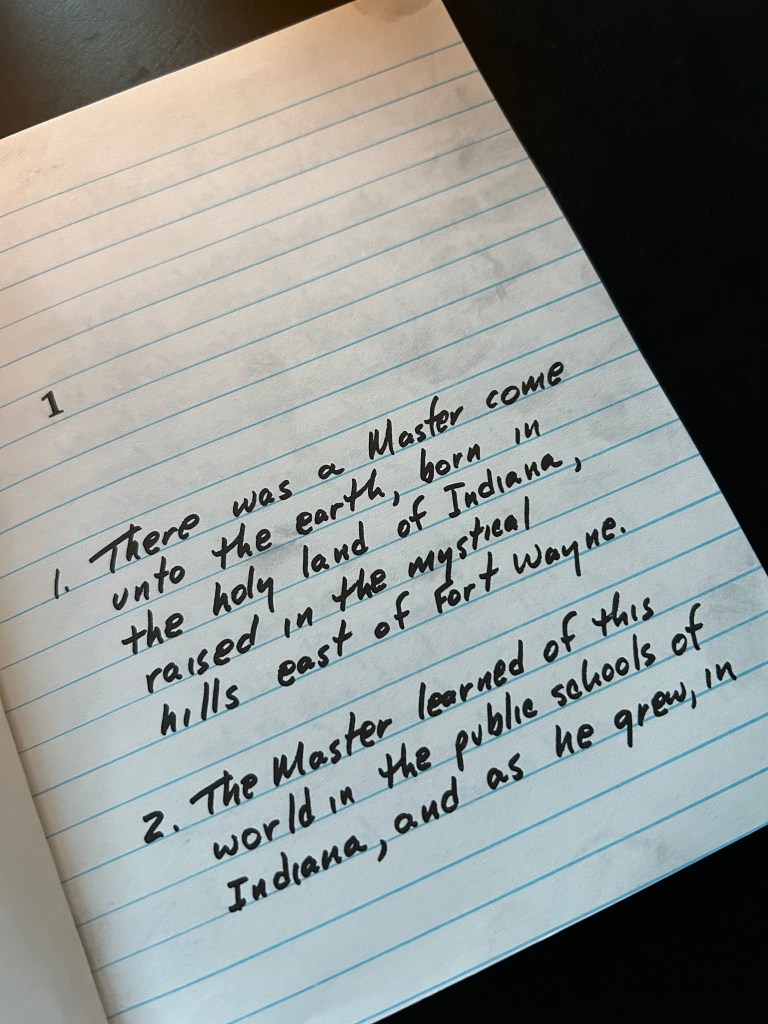 1
1. There was a Master come
unto the earth, born in
the holy land of Indiana,
raised in the mystical
hills east of Fort Wayne.
2. The Master learned of this
world in the public schools of
Indiana, and as he grew, in